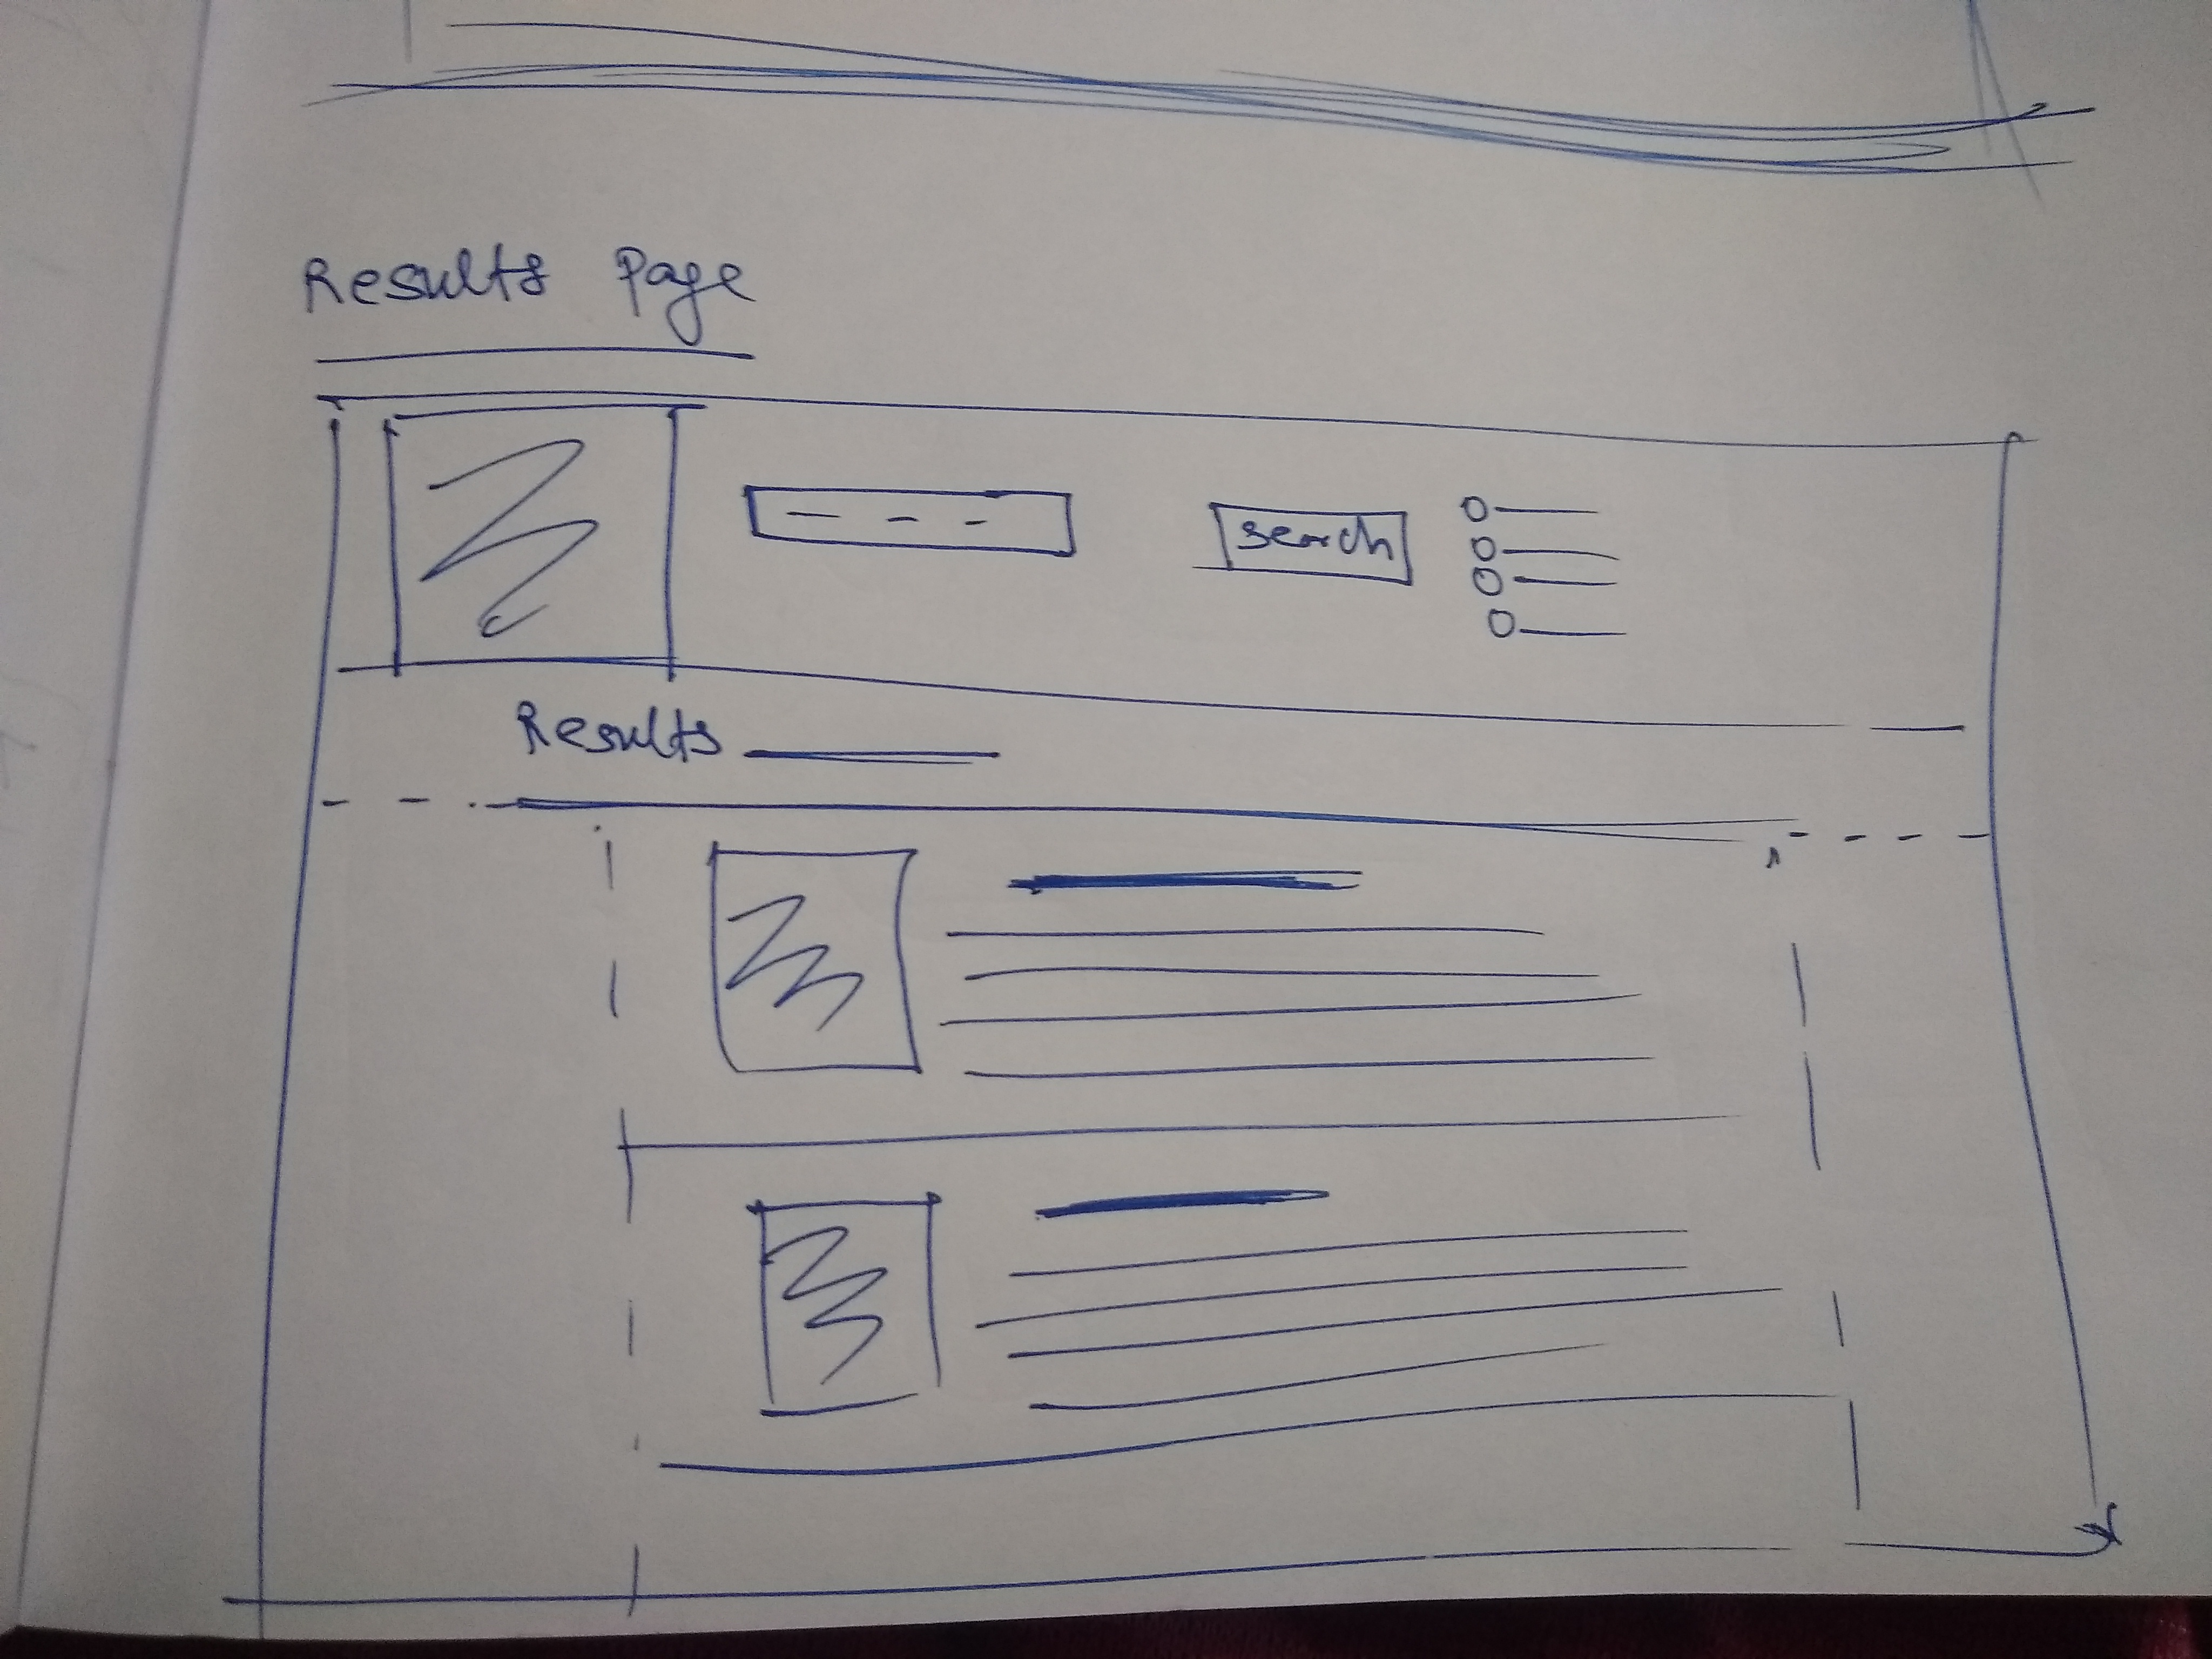 Results Page
search
Results